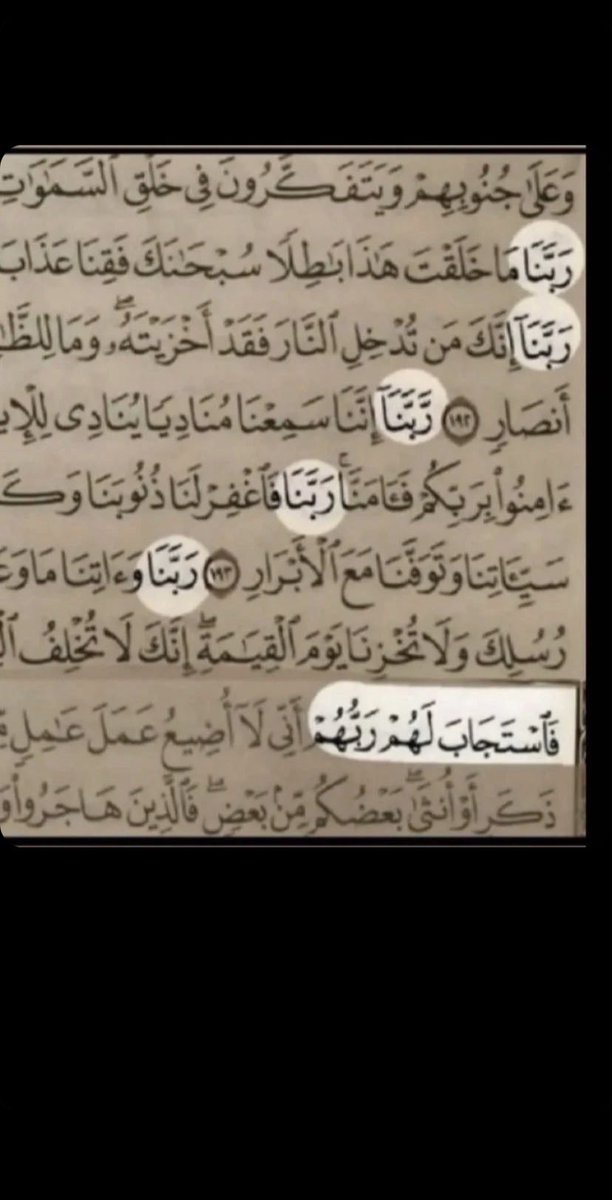 وَعَلَىٰ جُنُوبِهِمْ وَيَتَفَكَّرُونَ فِى خَلْقِ ٱلسَّمَٰوَٰتِ
رَبَّنَا مَا خَلَقْتَ هَٰذَا بَٰطِلًا سُبْحَٰنَكَ فَقِنَا عَذَابَ
رَبَّنَآ إِنَّكَ مَن تُدْخِلِ ٱلنَّارَ فَقَدْ أَخْزَيْتَهُۥ ۖ وَمَا لِلظَّ
أَنصَارٍ ١٩٢ رَّبَّنَآ إِنَّنَا سَمِعْنَا مُنَادِيًا يُنَادِى لِلْإِي
ءَامِنُوا۟ بِرَبِّكُمْ فَـَٔامَنَّا ۚ رَبَّنَا فَٱغْفِرْ لَنَا ذُنُوبَنَا وَكَ
سَيِّـَٔاتِنَا وَتَوَفَّنَا مَعَ ٱلْأَبْرَارِ ١٩٣ رَبَّنَا وَءَاتِنَا مَا وَعَ
رُسُلِكَ وَلَا تُخْزِنَا يَوْمَ ٱلْقِيَٰمَةِ ۗ إِنَّكَ لَا تُخْلِفُ
فَٱسْتَجَابَ لَهُمْ رَبُّهُمْ أَنِّى لَآ أُضِيعُ عَمَلَ عَٰمِلٍ
ذَكَرٍ أَوْ أُنثَىٰ ۖ بَعْضُكُم مِّنۢ بَعْضٍ ۖ فَٱلَّذِينَ هَاجَرُوا۟ وَ